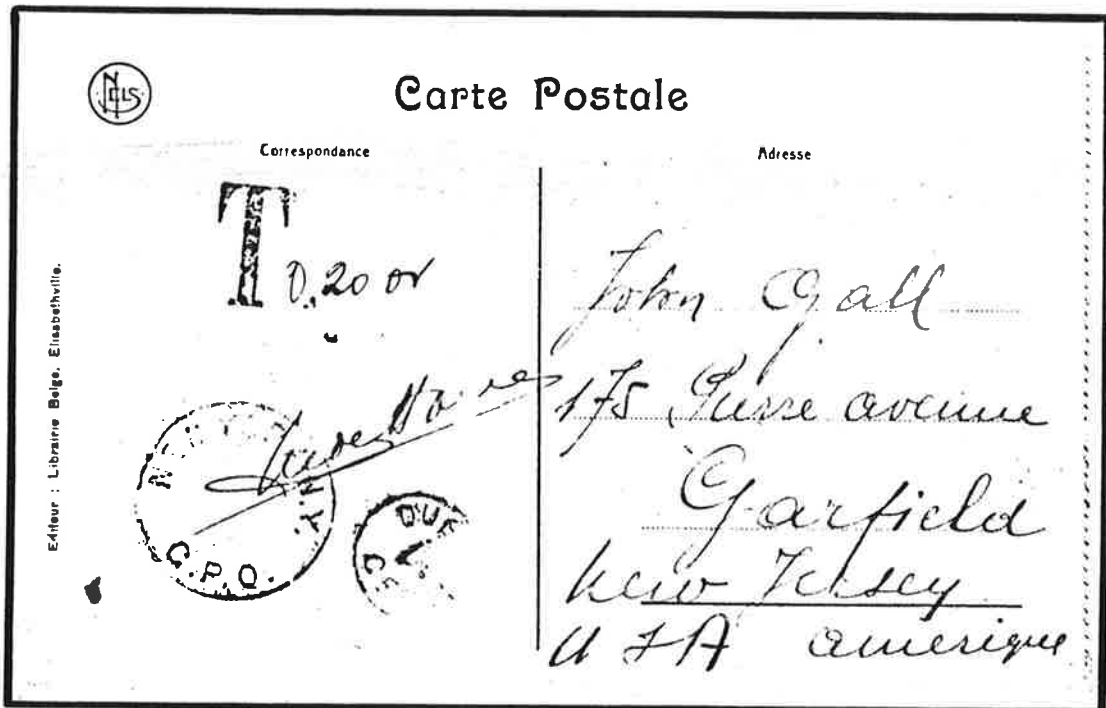 NELS
Carte Postale
Correspondance
Adresse
Editeur : Librairie Belge, Elisabethville.
T
0,20 or
John Gall
175 avenue
Garfield
New Jersey
USA amerique
C.P.O.
DUE